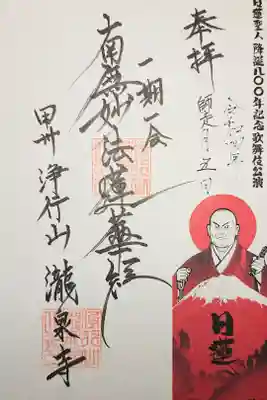 日蓮聖人降誕八〇〇年記念歌舞伎公演
奉拝
師走 五日
一期一会
南無妙法蓮華経
甲州 浄行山 瀧泉寺
日蓮